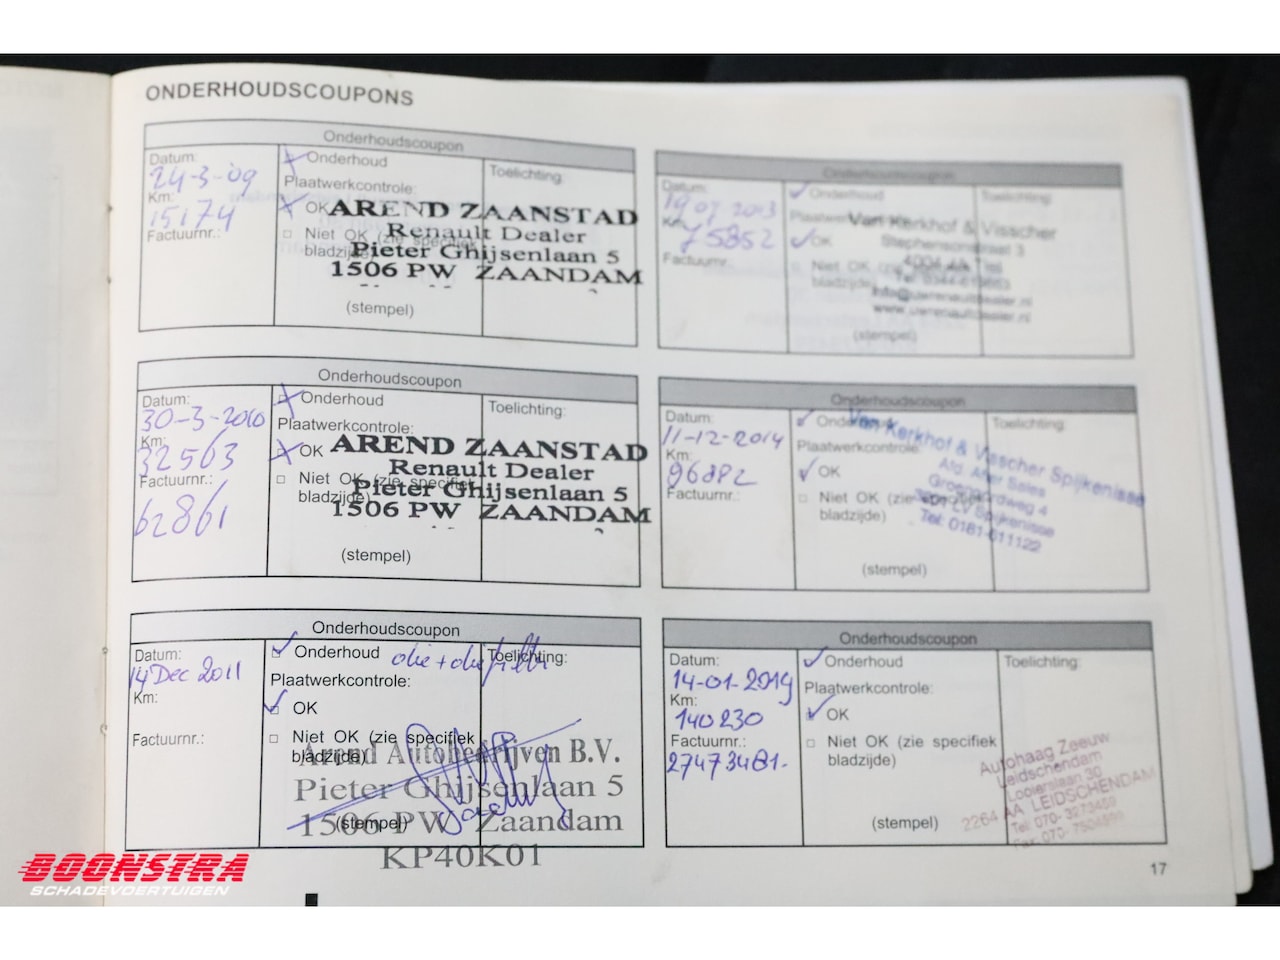 ONDERHOUDSCOUPONS
Onderhoudscoupon
Datum:
24-3-09
Km:
15174
Factuurnr.:
Onderhoud
Plaatwerkcontrole:
OK
Niet OK (zie specifiek
bladzijde)
(stempel)
Toelichting:
AREND ZAANSTAD
Renault Dealer
Pieter Ghijsenlaan 5
1506 PW ZAANDAM
Onderhoudscoupon
Datum:
30-3-2010
Km:
32563
Factuurnr.:
62861
Onderhoud
Plaatwerkcontrole:
OK
Niet OK (zie specifiek
bladzijde)
(stempel)
Toelichting:
AREND ZAANSTAD
Renault Dealer
Pieter Ghijsenlaan 5
1506 PW ZAANDAM
Onderhoudscoupon
Datum:
14 Dec 2011
Km:
Factuurnr.:
Onderhoud
olie + oliefilter
Plaatwerkcontrole:
OK
Niet OK (zie specifiek
bladzijde)
(stempel)
Toelichting:
Arend Autobedrijven B.V.
Pieter Ghijsenlaan 5
1506 PW Zaandam
KP40K01
Onderhoudscoupon
Datum:
19 07 2013
Km:
75852
Factuurnr.:
Onderhoud
OK
Niet OK
bladzijde)
(stempel)
Toelichting:
Van Kerkhof & Visscher
Stephensonstraat 3
4004 Tiel
www.uwrenaultdealer.nl
Onderhoudscoupon
Datum:
11-12-2014
Km:
96882
Factuurnr.:
Onderhoud
Plaatwerkcontrole:
OK
Niet OK (zie specifiek
bladzijde)
(stempel)
Toelichting:
Van Kerkhof & Visscher Spijkenisse
Afd. After Sales
Groenoordweg 4
LV Spijkenisse
Tel: 0181-611122
Onderhoudscoupon
Datum:
14-01-2019
Km:
140230
Factuurnr.:
27473481-
Onderhoud
Plaatwerkcontrole:
OK
Niet OK (zie specifiek
bladzijde)
(stempel)
Toelichting:
Autohaag Zeeuw
Leidschendam
Looierslaan 30
2264 AA LEIDSCHENDAM
Tel: 070-3273459
Fax: 070-
17
BOONSTRA
SCHADEVOERTUIGEN